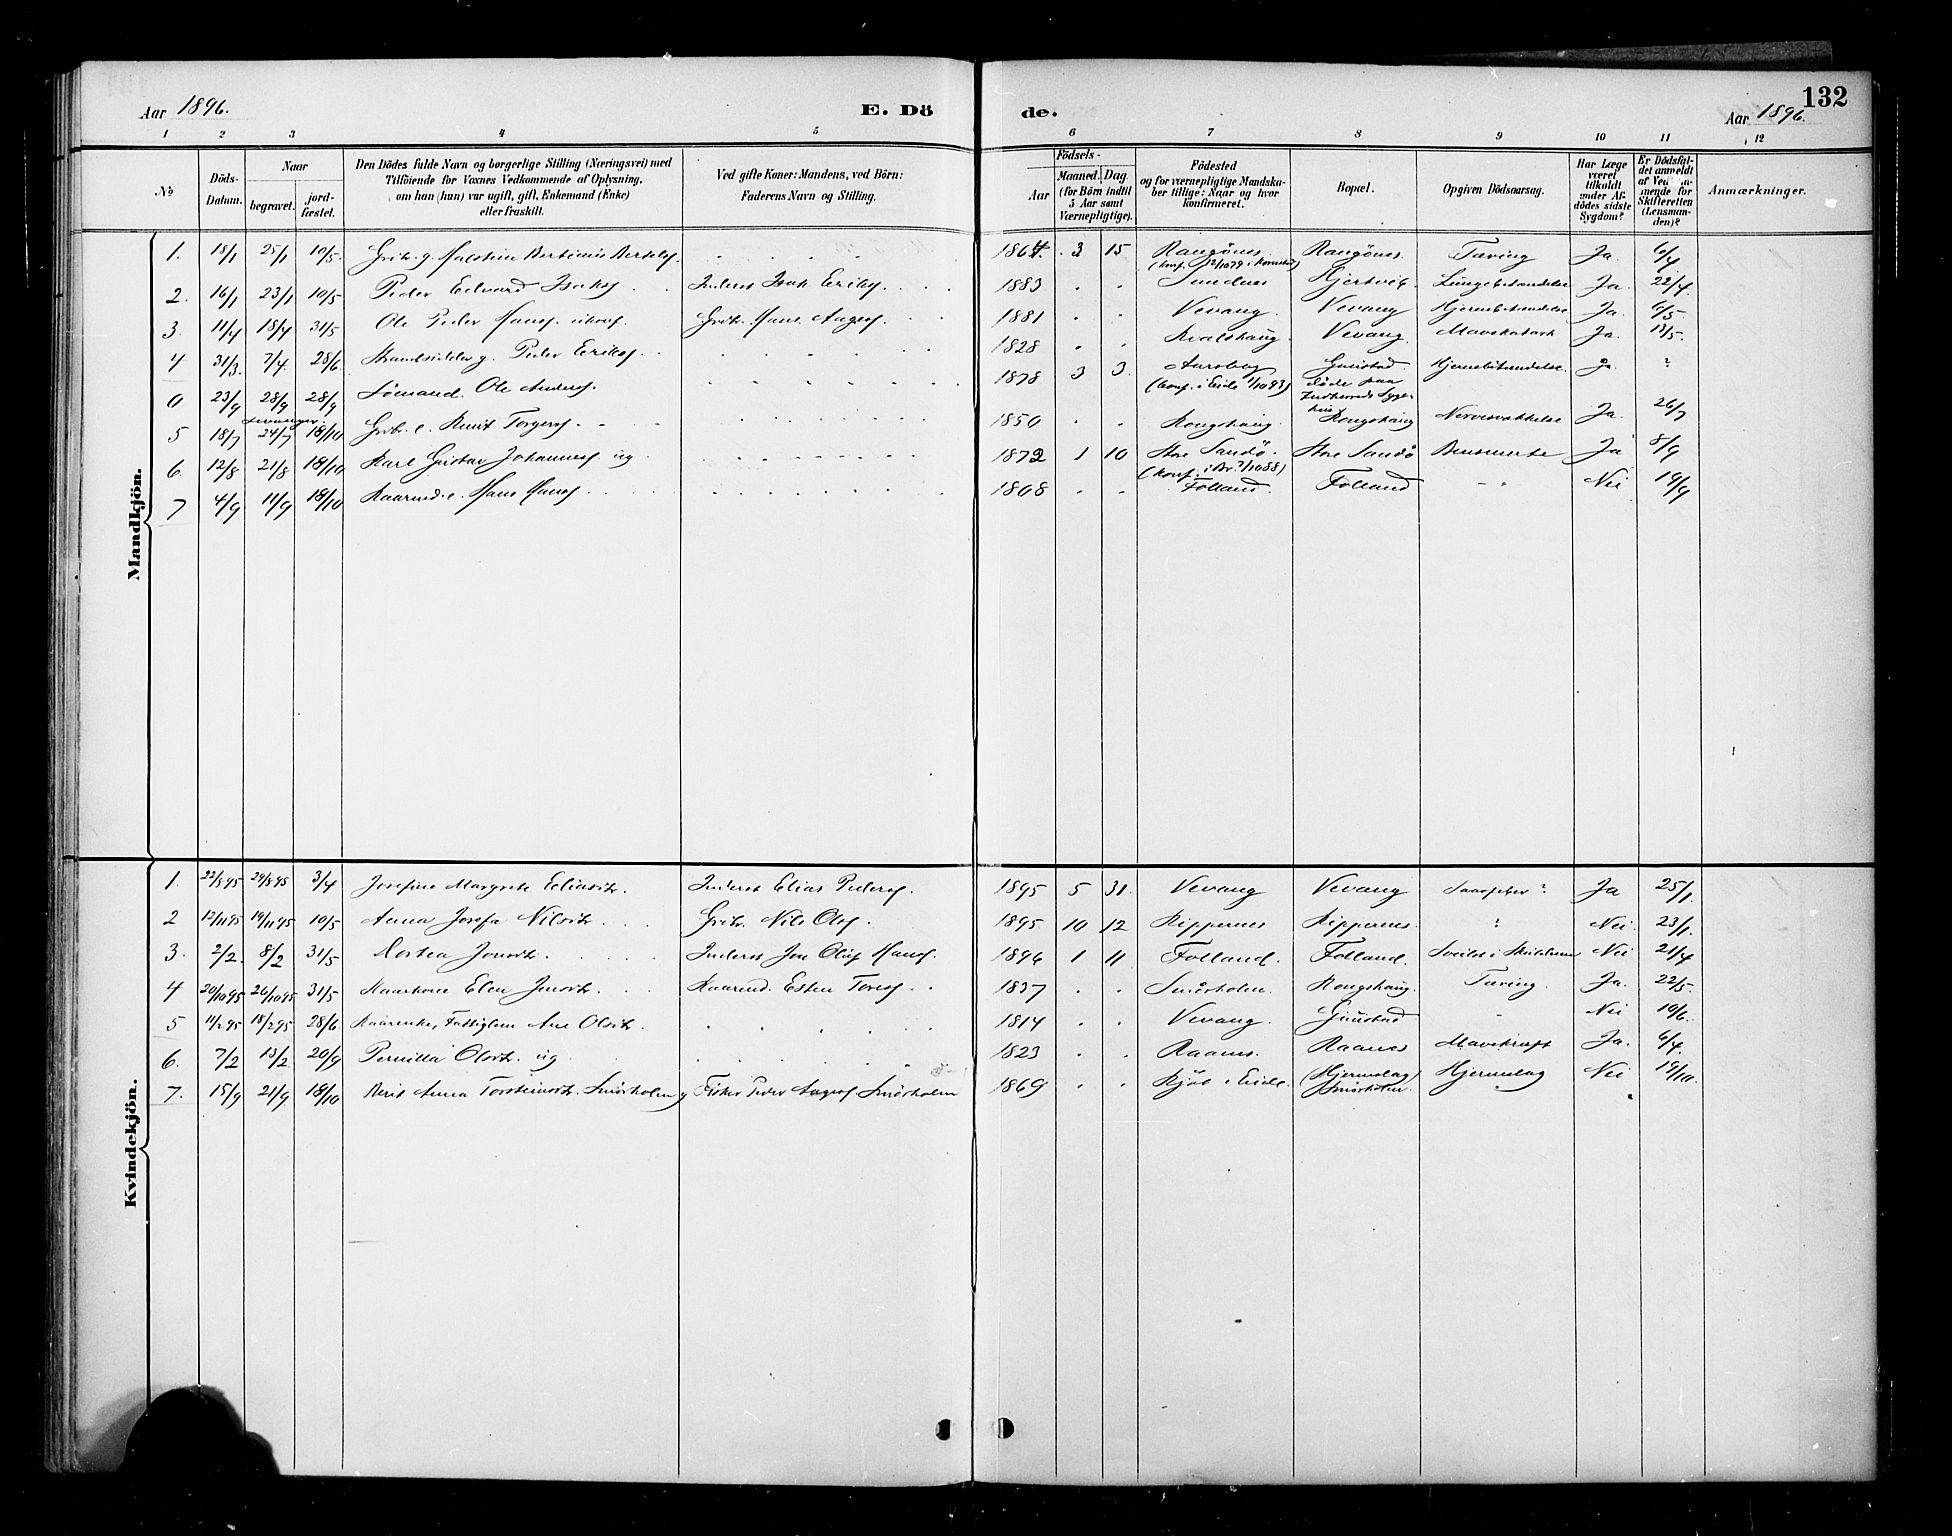 Aar 1896. E. Dö de. Aar 1896. 132
1 2 3 4 5 6 7 8 9 10 11 12
No
Döds-Datum.
Naar
begravet.
jord-fæstet.
Den Dödes fulde Navn og borgerlige Stilling (Næringsvei) med
Tilföiende for Voxnes Vedkommende af Oplysning,
om han (hun) var ugift, gift, Enkemand (Enke)
eller fraskilt.
Ved gifte Koner: Mandens, ved Börn:
Faderens Navn og Stilling.
Födsels-
Aar
Maaned. Dag.
(for Börn indtil
5 Aar samt
Værnepligtige).
Födested
og for værnepligtige Mandska-
ber tillige: Naar og hvor
konfirmeret.
Bopæl.
Opgiven Dödsaarsag.
Har Læge
været
tilkaldt
under Af-
dödes sidste
Sygdom?
Er Dödsfal-
det anmeldt
af Ved
mende for
Skifteretten
(Lensman-
den)?
Anmærkninger.
Mandkjön.
1. 18/1 25/1 10/5 Grbr. g. Halstein Bertinius Bertelss. 1864. 3 15 Rangönes Rangönes Tæring Ja. 6/4
(konf. 12/10 79 i Kornstad)
2. 16/1 23/1 10/5 Peder Edvard Isaks. Inderst Isak Eriks. 1883 Sundnes Hjertvik Lungebetændelse Ja. 22/4
3. 11/4 18/4 31/5 Ole Peder Hanss. ukonf. Grbr. Hans Aages. 1881 Vevang. Vevang Hjernebetændelse Ja. 6/5
4 31/3. 7/4 28/6 Strandsidder g. Peder Eriks. 1828 Kvalshaug. Vevang. Mavekatarh Ja. 13/5.
0 23/9 28/9 28/9 Sömand. Ole Anders. 1878 3 3. Aarsbog Gaustad Hjernebetændelse. Ja. ?
(konf. i Eide 1/10 93) döde paa
Indherreds Syge-
hus
5 18/7 24/7 18/10 Grbr. e. Knut Torgers. 1850 Kongshaug. Kongshaug Nervesvækkelse Ja. 26/7
6 12/8 21/8 18/10 Karl Gustav Johanness. ug 1872 1 10 Store Sandö. Store Sandö Brusmerte Ja 8/9
(konf. i Br. 7/10 88)
7 4/9 11/9 18/10 Kaarmd. e. Hans Hanss. 1808 Folland. Folland Nei 19/9
Kvindekjön.
1. 22/8 95 29/8 95 3/4 Josefine Margrete Eliasdtr. Inderst Elias Peders. 1895 5 31. Vevang Vevang ? Ja 25/1.
2 12/11 95 19/11 95 10/5 Anna Josefa Nilsdtr. Grbr. Nils Ols. 1895 10 12 Kippernes Kippernes. Nei 23/1.
3. 2/2. 8/2 31/5 Mortea Jonsdtr. Inderst Jon Oluf Hanss. 1896 1 11 Folland. Folland. Nei 21/4
4 20/10 95 26/10 95 31/5 Kaarkone Elen Jonsdtr. Kaarmd. Esten Tores. 1837 Smörholm. Kongshaug. Tæring. Ja. 22/5.
5 11/2 95 18/2 95 28/6 Kaarenke, Fattiglem Ane Olsdtr. 1814 Vevang. Gaustad Nei 10/6.
6. 7/2 13/2 20/9 Pernilla Olsdt. ug 1823 Raanes. Raanes Mavekræft Ja. 6/4.
7. 15/9 21/9 18/10 Berit Anna Torsteinsdtr. Smörholm g Fisker Peder Aages. Smörholm 1869 Kjöl i Eide. (Hjermslag) Hjermslag Nei 19/10.
Smörholm.